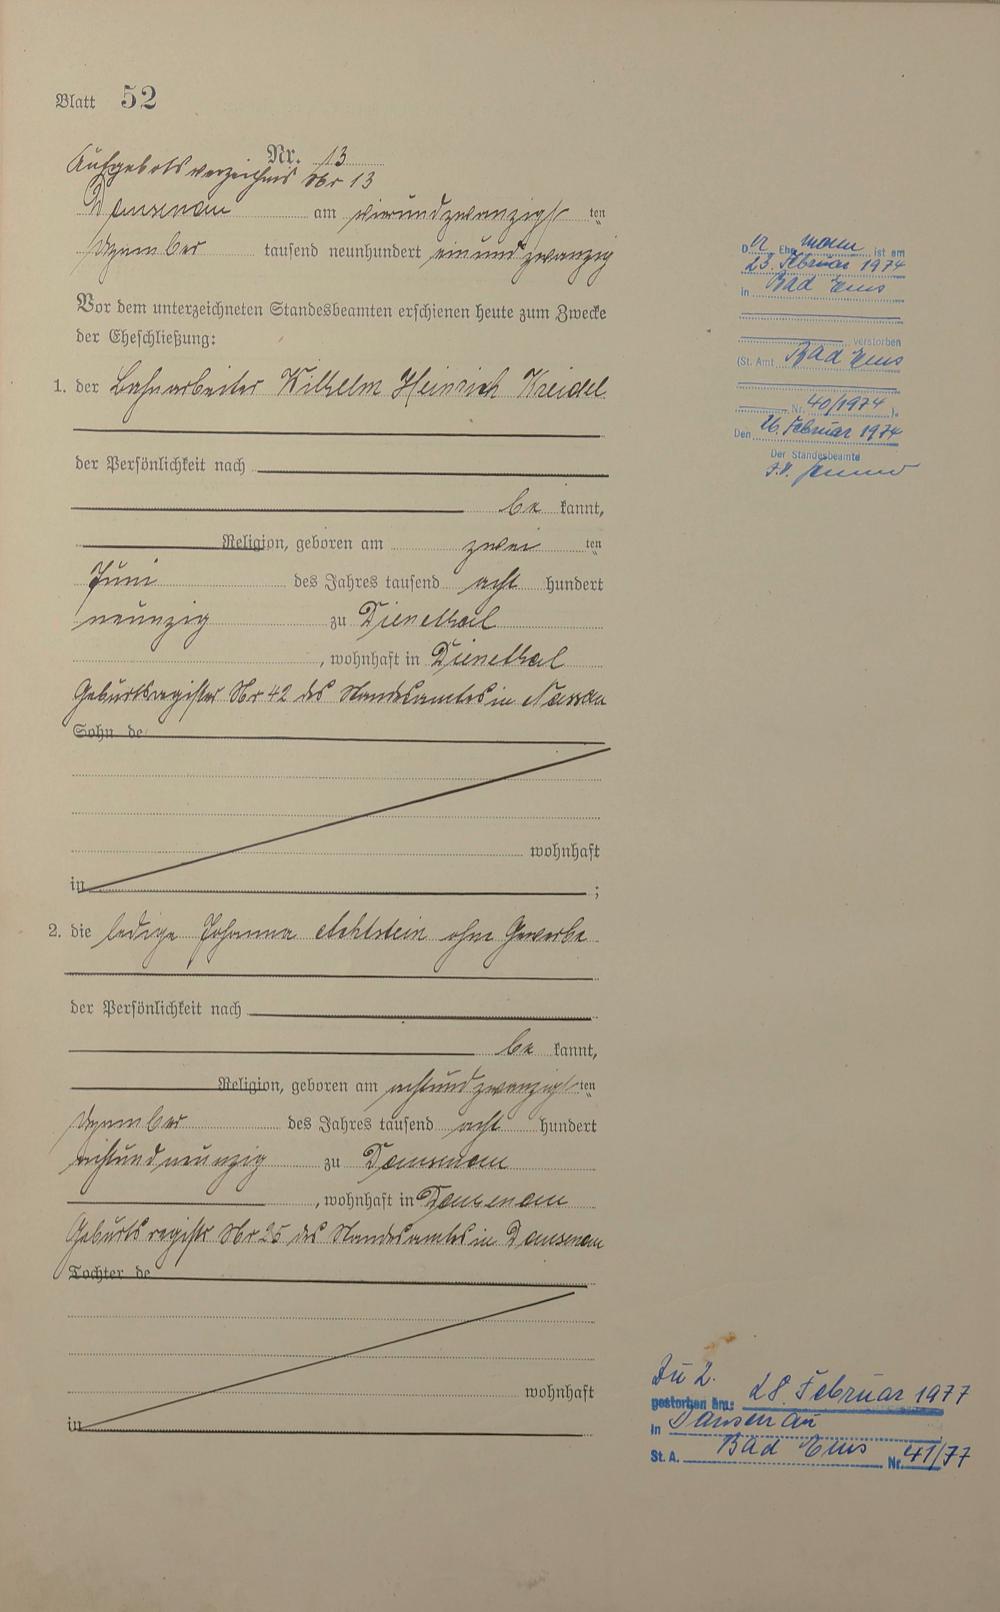 Blatt 52
Nr. 13
Aufgebotsverzeichnis Nr 13
Dausenau am vierundzwanzigsten
Dezember tausend neunhundert einundzwanzig
Vor dem unterzeichneten Standesbeamten erschienen heute zum Zwecke
der Eheschließung:
1. der Bahnarbeiter Wilhelm Heinrich Kreidel
der Persönlichkeit nach
be kannt,
Religion, geboren am zwei ten
Juni des Jahres tausend acht hundert
neunzig zu Dienethal
, wohnhaft in Dienethal
Geburtsregister Nr 42 des Standesamtes in Nassau
Sohn de
wohnhaft
in ;
2. die ledige Johanna ohne Gewerbe
der Persönlichkeit nach
be kannt,
Religion, geboren am achtundzwanzigsten
Dezember des Jahres tausend acht hundert
achtundneunzig zu Dausenau
, wohnhaft in Dausenau
Geburtsregister Nr 25 des Standesamtes in Dausenau
Tochter de
wohnhaft
in
Der Ehemann ist am
23. Februar 1974
in Bad Ems
verstorben
(St. Amt Bad Ems
Nr. 40/1974 ).
Den 26. Februar 1974
Der Standesbeamte
I.V.
Zu 2.
gestorben am: 28. Februar 1977
in Dausenau
St. A. Bad Ems Nr. 41/77